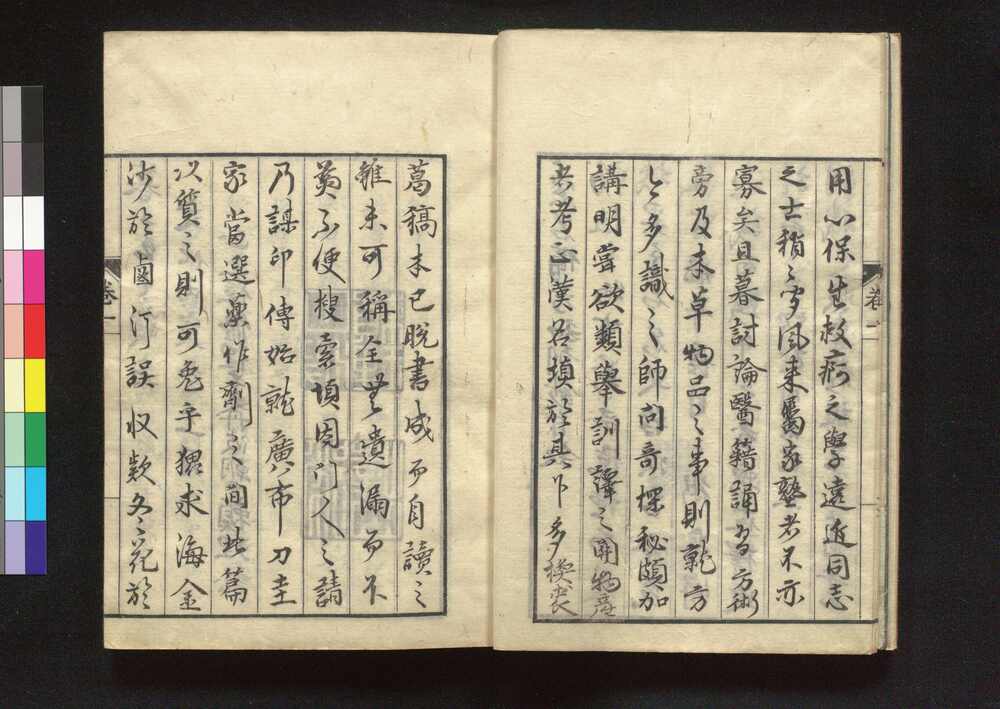 用心保生救疴之學遠近同志
之士稍々字風来寓家塾者不亦
寡矣旦暮討論醫籍誦習方術
旁及本草物品之事則就方
今多識之師問奇探秘頗加
講明嘗欲類擧訓譯之開物產
者考正漢名填於其下多襍喪
葛稿未已脫書成而自讀之
雖未可稱全無遺漏而不
黃不便搜索頃因門人之請
乃謀印傳始就廣市刀圭
家當選藥作劑之間此篇
以質之則可免乎猥求海金
沙於鹵汀誤收欵冬花於
卷一
卷一